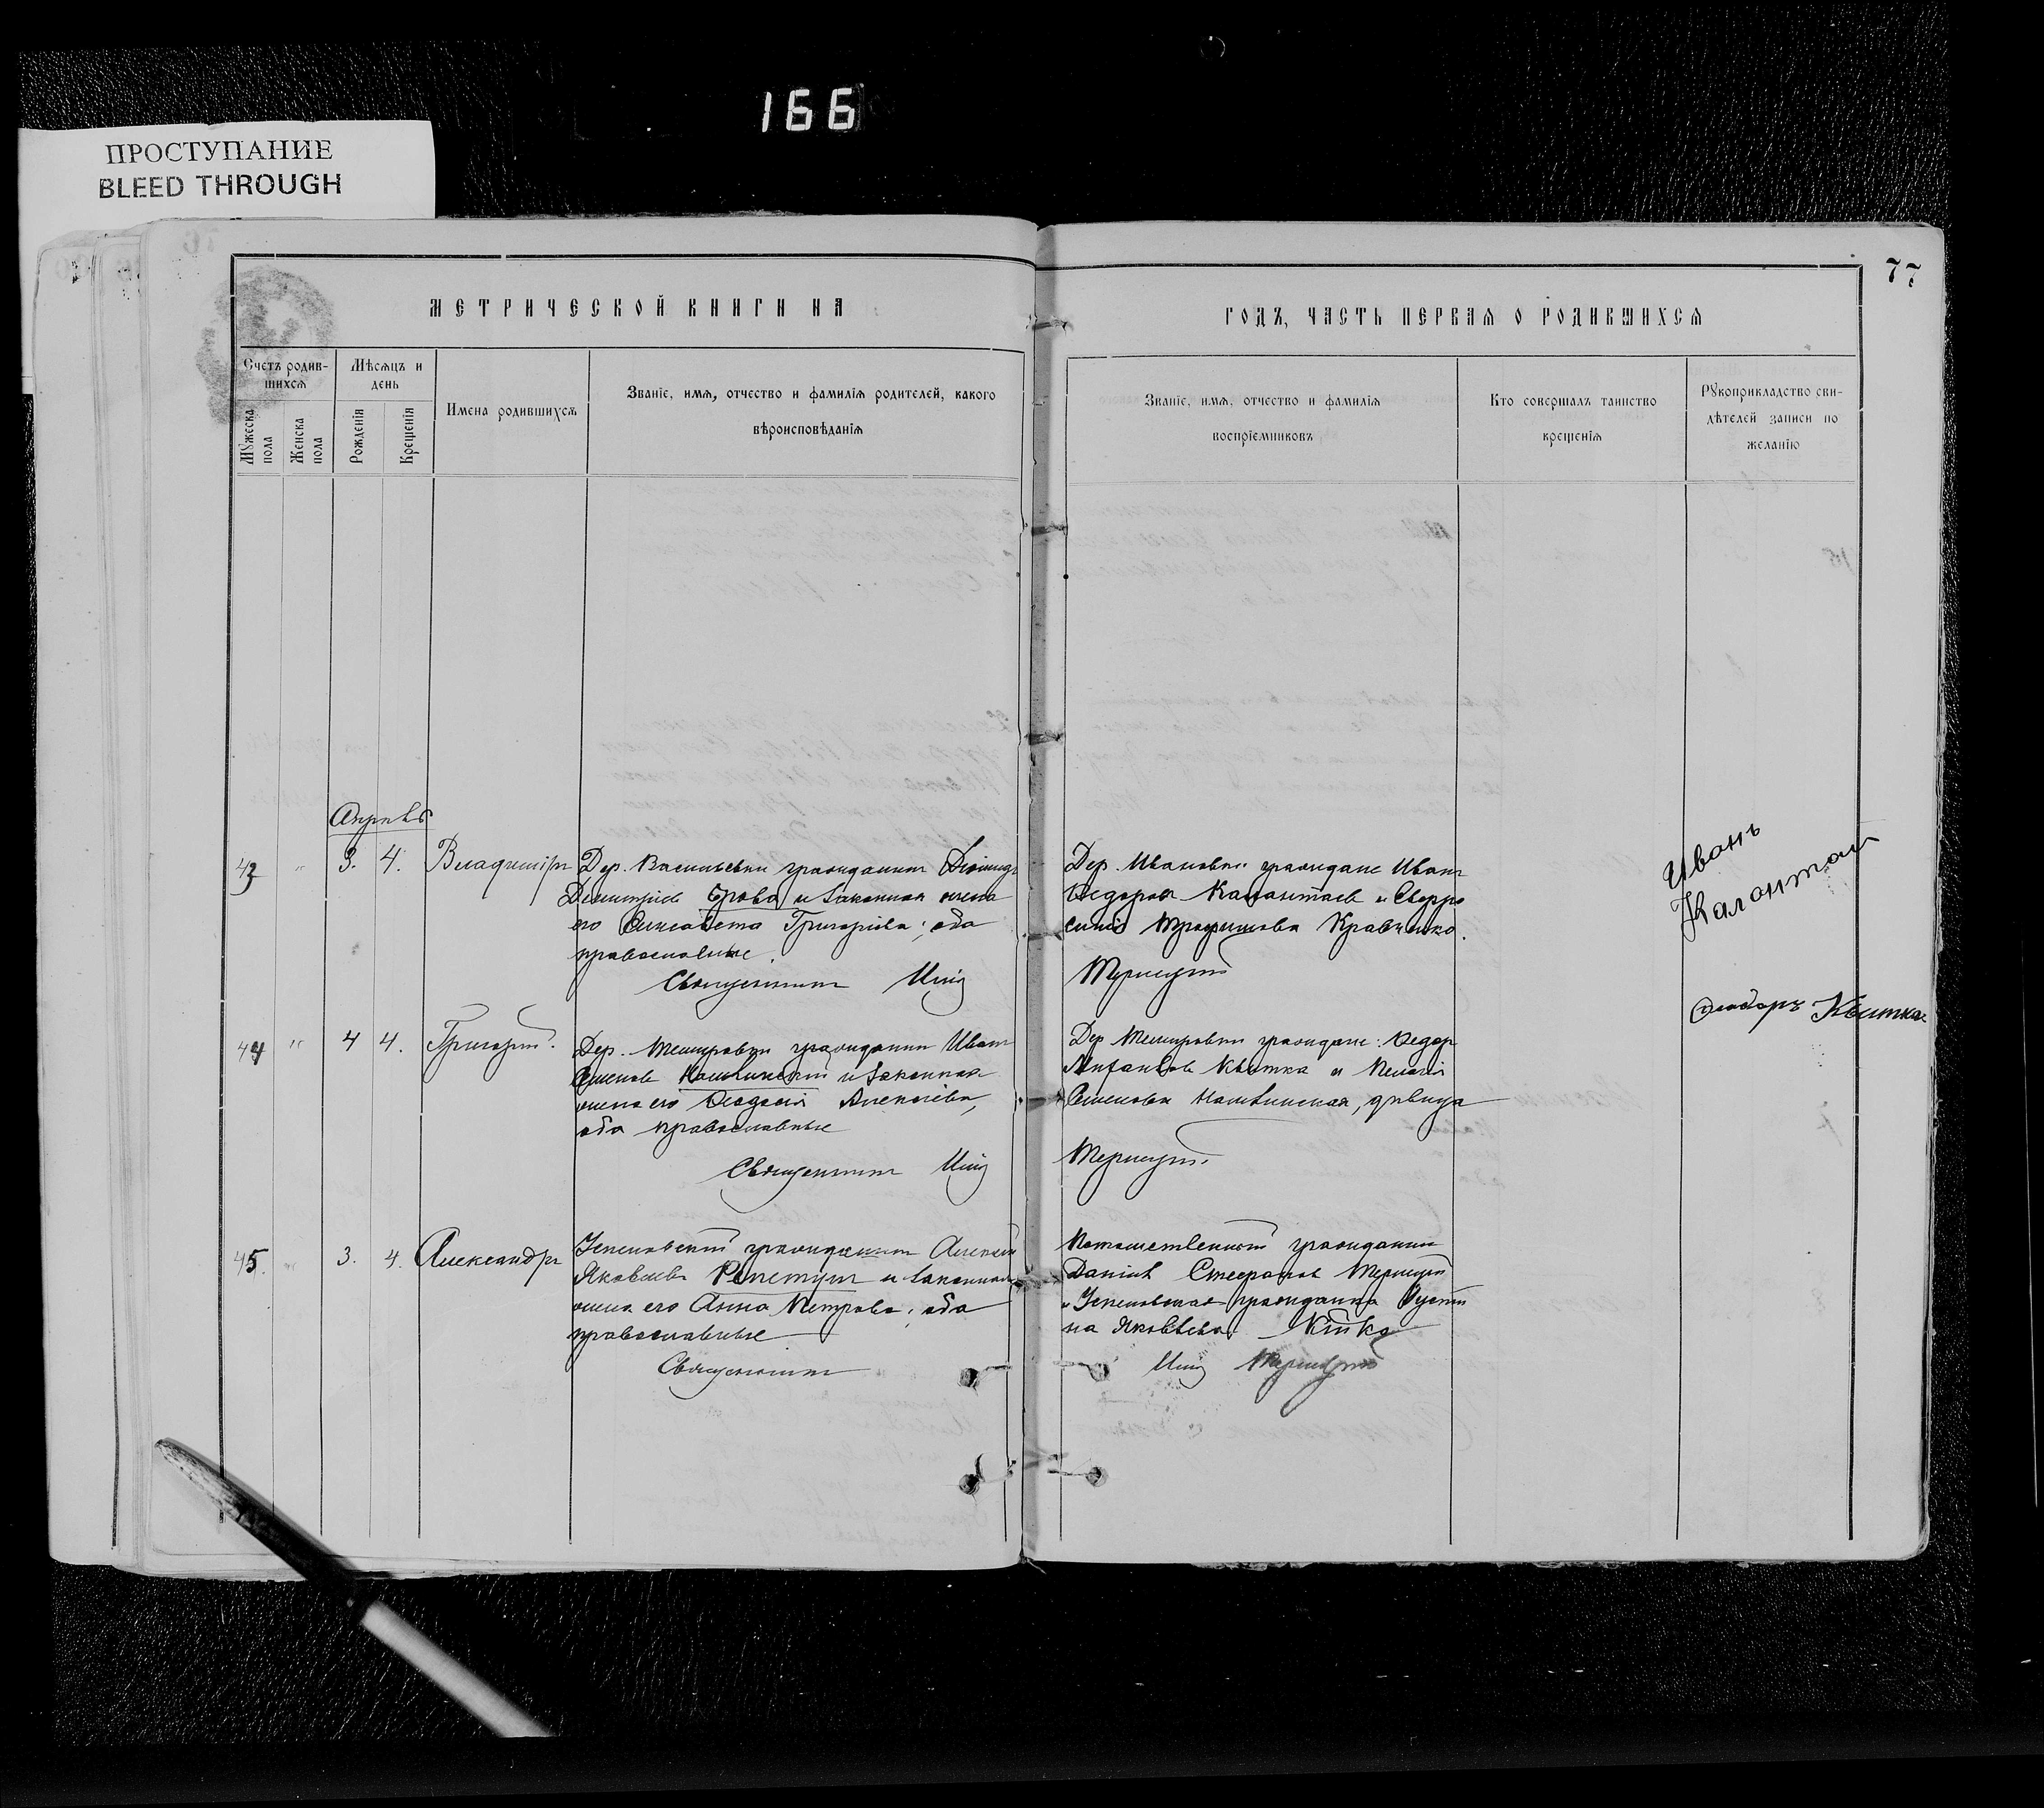 166
ПРОСТУПАНИЕ
BLEED THROUGH
77
МЕТРИЧЕСКОЙ КНИГИ НА
ГОДЪ, ЧАСТЬ ПЕРВАЯ О РОДИВШИХСЯ
Счетъ родив-
шихся
Мужеска пола
Женска пола
Мѣсяцъ и
день
Рожденія
Крещенія
Имена родившихся
Званіе, имя, отчество и фамилія родителей, какого
вѣроисповѣданія
Званіе, имя, отчество и фамилія
воспріемниковъ
Кто совершалъ таинство
крещенія
Рукоприкладство сви-
дѣтелей записи по
желанію
Апрѣль
43 " 3. 4. Владиміръ
Дер. Васильевки гражданинъ
Димитріевъ и законная жена
его Елисавета Григоріева; оба
православные.
Священникъ
Дер. Ивановки граждане Иванъ
Федоровъ Калантаевъ и Евфро
синія Трофимова Кравченко.
Иванъ
Калантай
44 " 4 4. Григорій.
Дер. гражданинъ Иванъ
Семеновъ и законная
жена его Феодосія Алексіева,
оба православные
Священникъ
Дер. граждане: Федоръ
Квитка и Пелагія
Семенова дѣвица
Феодоръ Квитка
45. " 3. 4. Александръ
Успеновскій гражданинъ Алексій
Яковлевъ Репетунъ и законная
жена его Анна Петрова; оба
православные
Священникъ
гражданинъ
Даніилъ Стефановъ
и Успеновская гражданка Іусти
на Яковлева